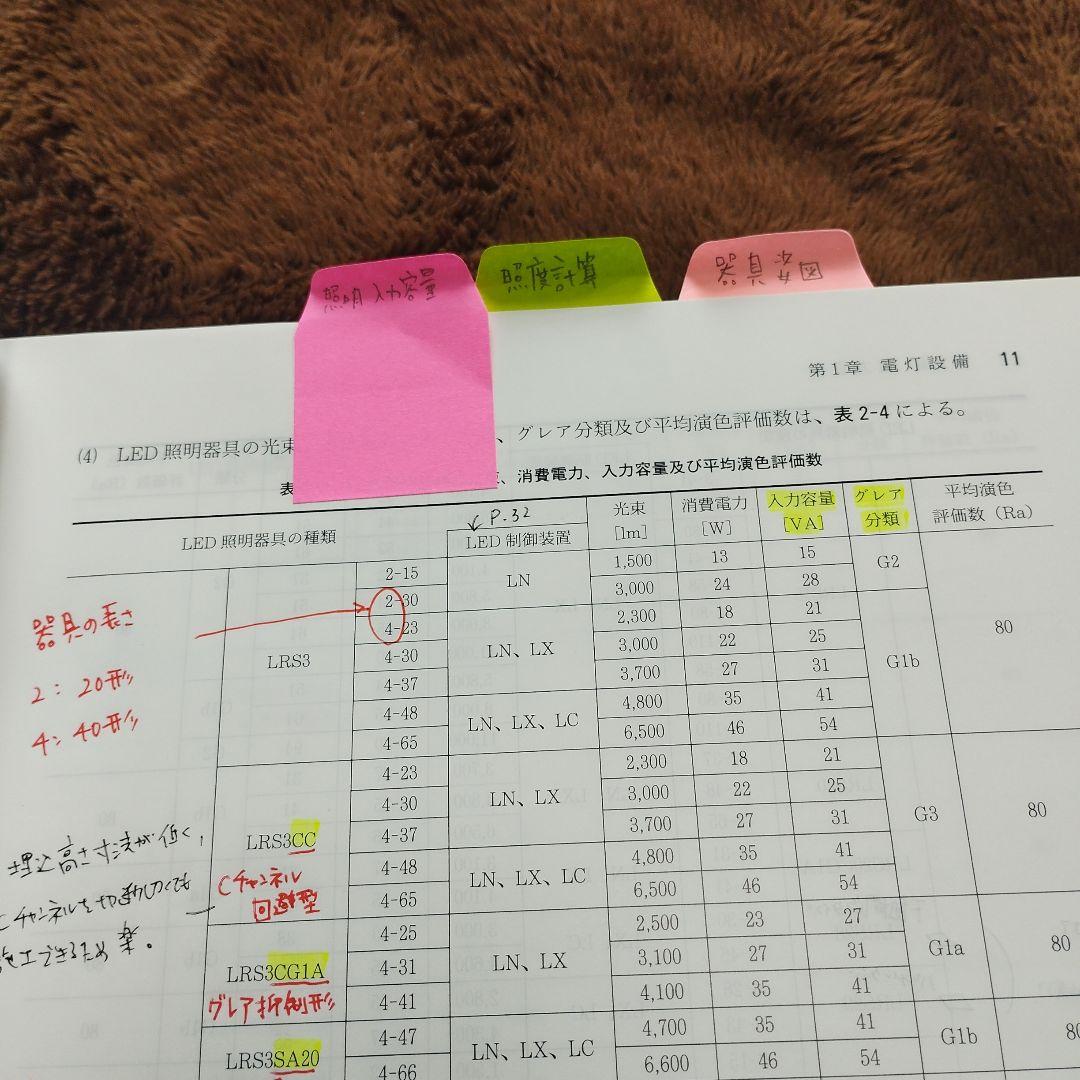 照明入力容量
照度計算
器具姿図
第1章 電灯設備 11
(4) LED照明器具の光束 、グレア分類及び平均演色評価数は、表2-4による。
表 、消費電力、入力容量及び平均演色評価数
LED照明器具の種類 P.32 LED制御装置 光束[lm] 消費電力[W] 入力容量[VA] グレア分類 平均演色評価数(Ra)
LRS3 2-15 LN 1,500 13 15 G2 80
2-30 3,000 24 28
4-23 LN、LX 2,300 18 21 G1b
4-30 3,000 22 25
4-37 3,700 27 31
4-48 LN、LX、LC 4,800 35 41
4-65 6,500 46 54
LRS3CC 4-23 LN、LX 2,300 18 21 G3 80
4-30 3,000 22 25
4-37 3,700 27 31
4-48 LN、LX、LC 4,800 35 41
4-65 6,500 46 54
LRS3CG1A 4-25 LN、LX 2,500 23 27 G1a 80
4-31 3,100 27 31
4-41 4,100 35 41
LRS3SA20 4-47 LN、LX、LC 4,700 35 41 G1b 80
4-66 6,600 46 54
器具の長さ
2: 20形
4: 40形
埋込高さ寸法が低く、
Cチャンネルを切断しなくても
施工できるため楽。
Cチャンネル
回避型
グレア抑制形